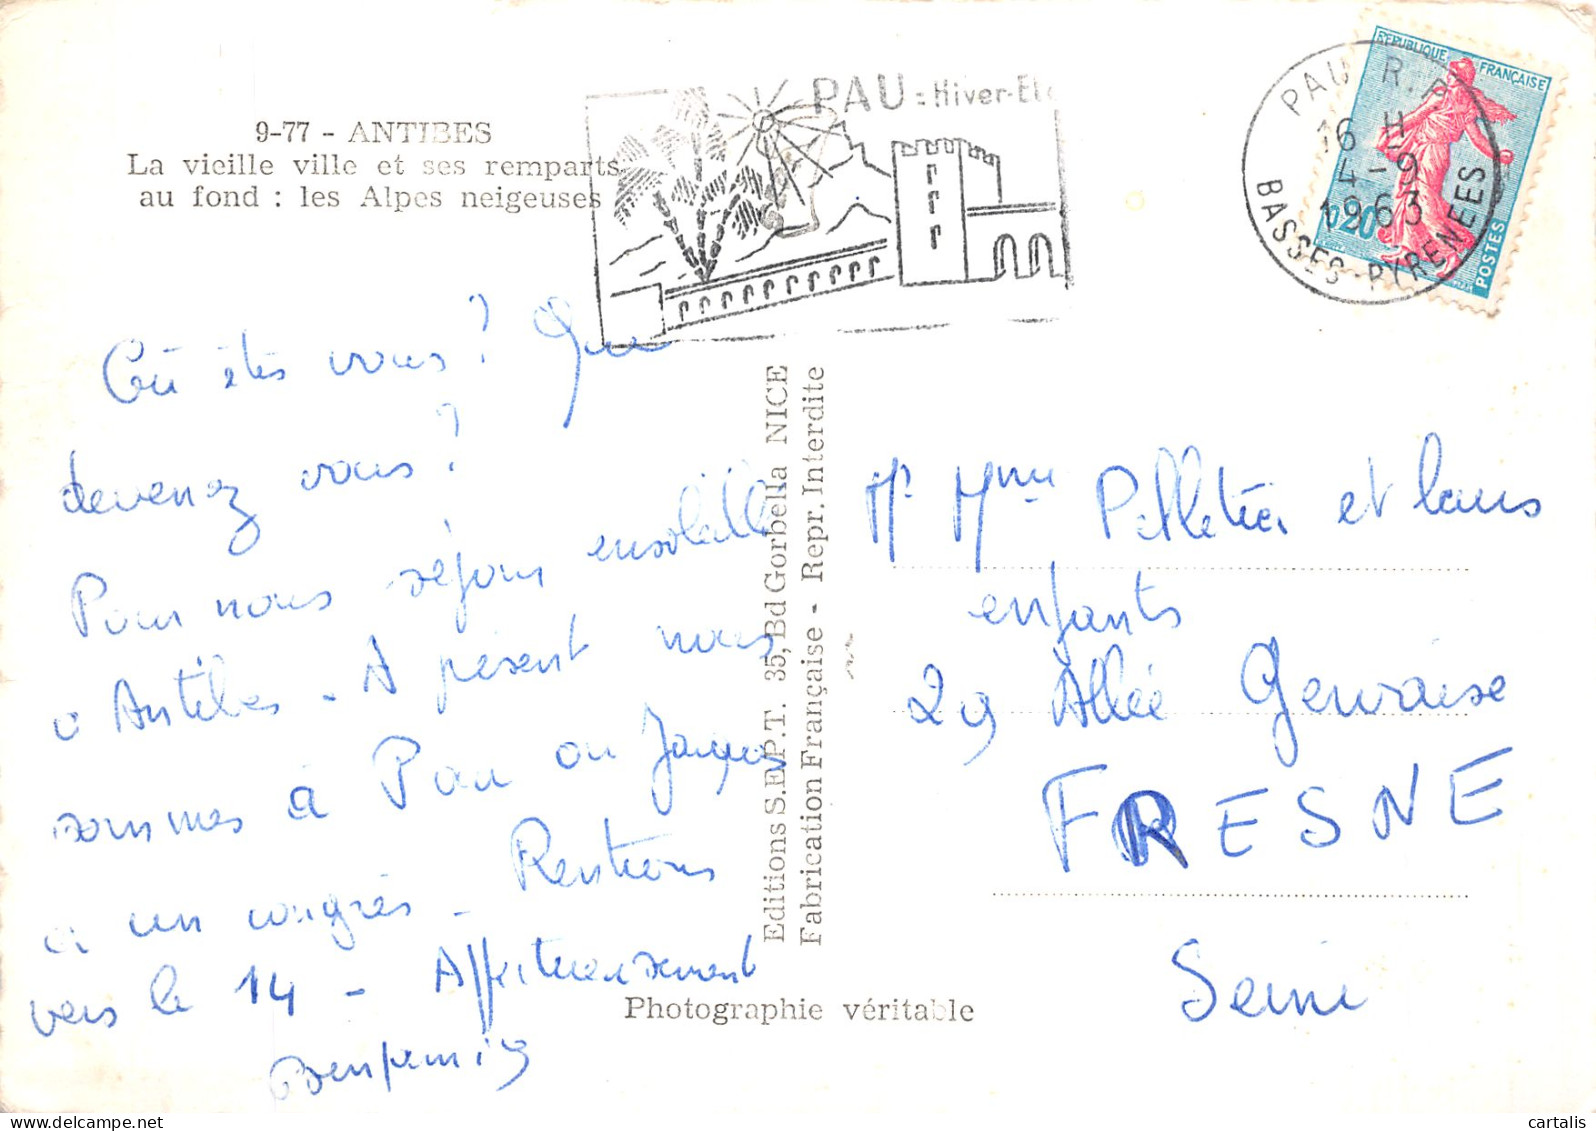 9-77 - ANTIBES
La vieille ville et ses remparts
au fond : les Alpes neigeuses
PAU = Hiver-Eté
PAU R.P.
16 H
4-9
1963
BASSES-PYRENEES
REPUBLIQUE FRANÇAISE
0,20
POSTES
Où êtes vous? Que
devenez vous?
Pour nous séjour ensoleillé
à Antibes - A présent nous
sommes à Pau où Jacques
a un congrès - Rentrons
vers le 14 - Affectueusement
Editions S.E.P.T. 35, Bd Gorbella NICE
Fabrication Française - Repr. Interdite
Photographie véritable
Mr Mme Pelletier et leurs
enfants
29 Allée Gervaise
FRESNE
Seine
cartalis